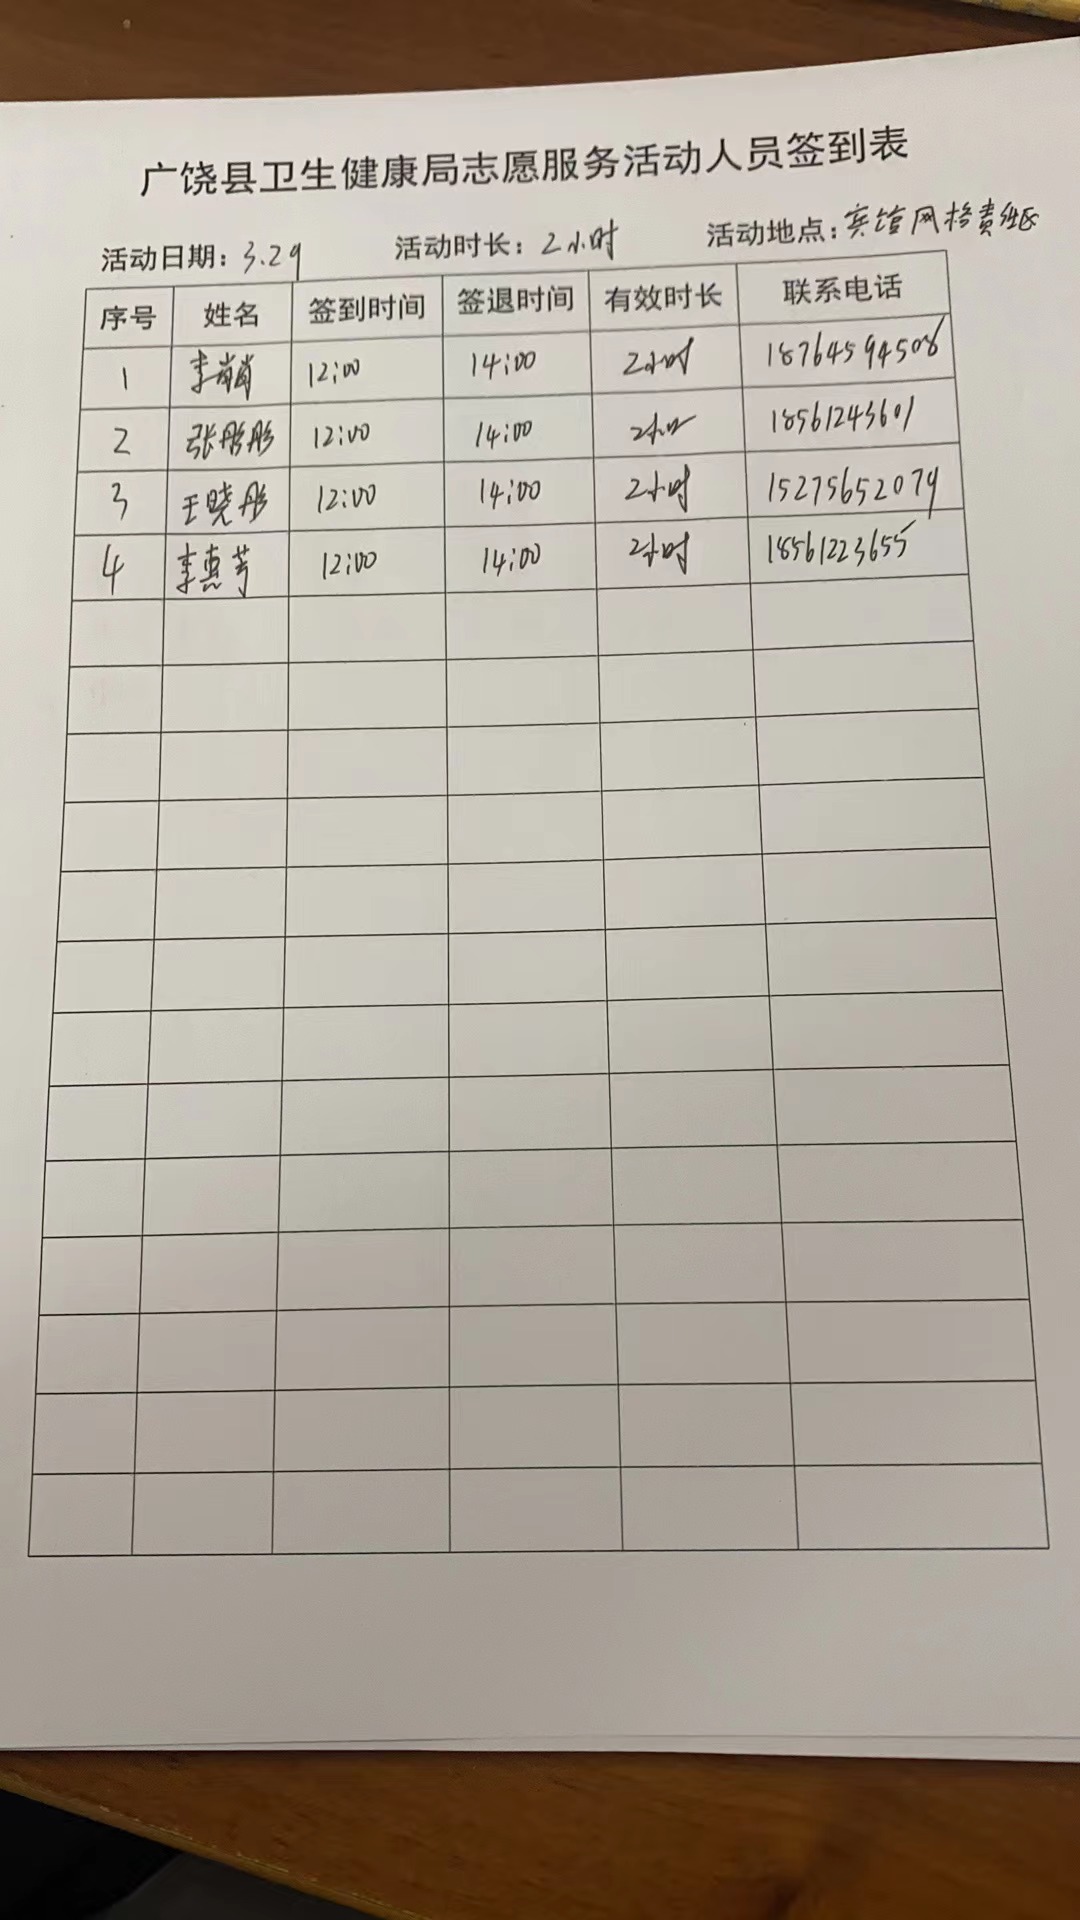 广饶县卫生健康局志愿服务活动人员签到表
活动日期：3.29 活动时长：2小时 活动地点：宾馆网格责任区
序号 姓名 签到时间 签退时间 有效时长 联系电话
1 李 12:00 14:00 2小时 18764594508
2 张彤彤 12:00 14:00 2小时 18561243601
3 王晓彤 12:00 14:00 2小时 15275652079
4 李惠芳 12:00 14:00 2小时 18561223655